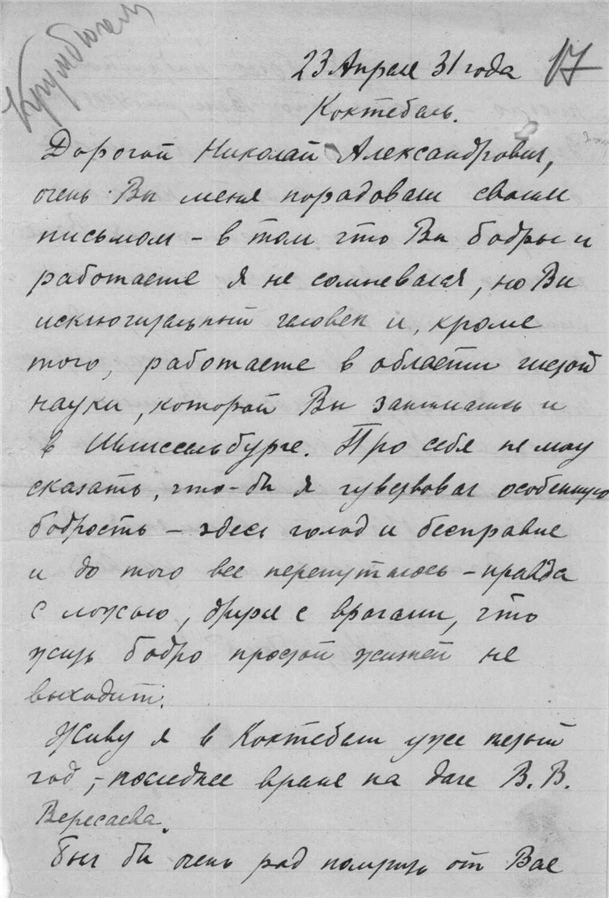 Крумбюгель
23 Апреля 31 года 17
Коктебель.
Дорогой Николай Александрович,
очень Вы меня порадовали своим
письмом – в том что Вы бодры и
работаете я не сомневался, но Вы
исключительный человек и, кроме
того, работаете в области чистой
науки, которой Вы занимались и
в Шлиссельбурге. Про себя не могу
сказать, что-бы я чувствовал особенную
бодрость – здесь голод и бесправие
и до того все перепуталось – правда
с ложью, друзья с врагами, что
жить бодро простой жизнью не
выходит.
Живу я в Коктебели уже
год, – последнее время на даче В. В.
Вересаева.
Был бы очень рад получить от Вас